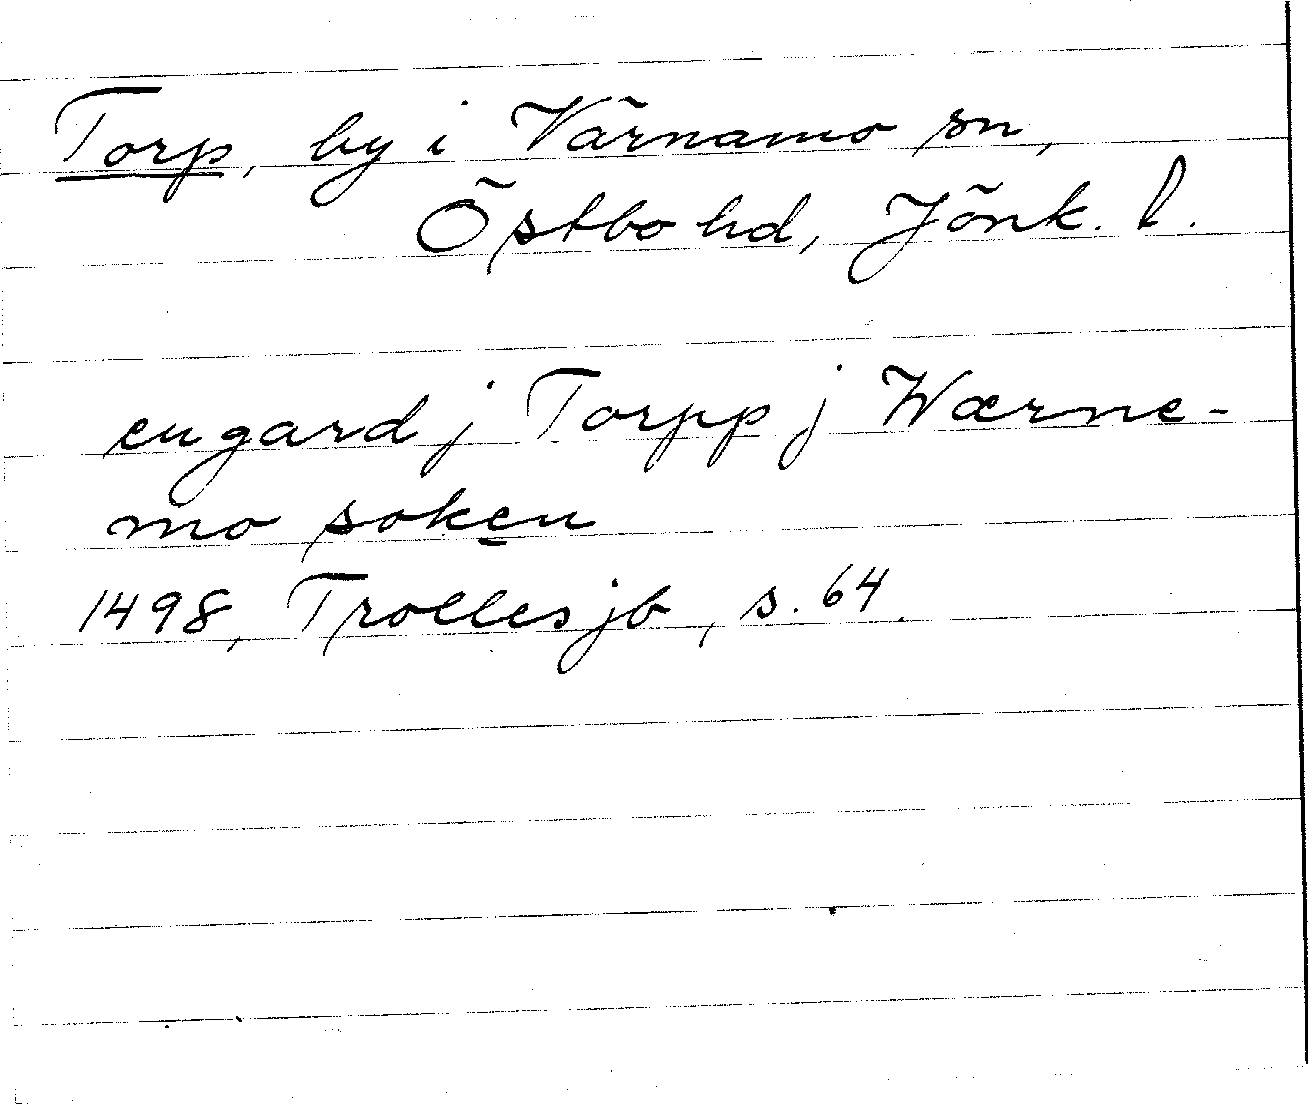 Torp, by i Värnamo sn,
Östbo hd, Jönk. l.
en gard j Torpp j Wærne-
mo soken
1498, Trolles jb, s. 64.